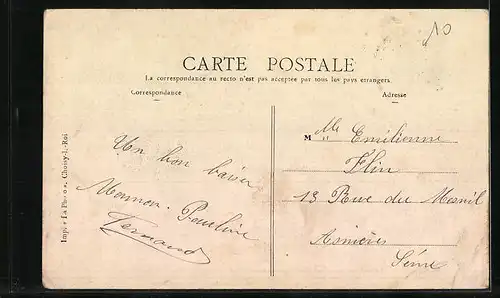 10
CARTE POSTALE
La correspondance au recto n'est pas acceptée par tous les pays étrangers.
Correspondance
Adresse
Un bon baiser
Maman - Pauline
Fernand
M lle Emilienne
Flin
13 Rue du Mesnil
Asnières
Seine
Choisy-l.-Roi